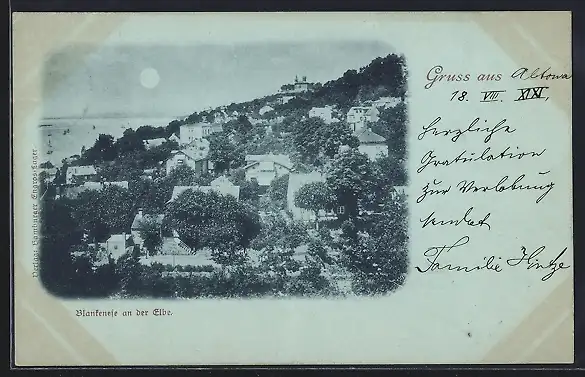 Gruss aus Altona
18. VIII. XIXI.
Herzliche
Gratulation
zur Verlobung
sendet
Familie Hintze
Blankenese an der Elbe.
Verlag: Hamburger Engros-Lager